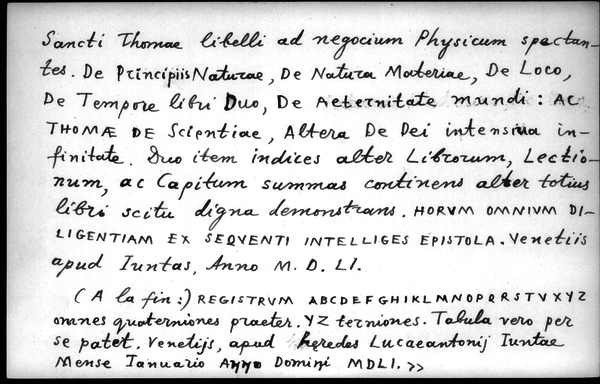 Sancti Thomae libelli ad negocium Physicum spectan-
tes. De Principiis Naturae, De Natura Materiae, De Loco,
De Tempore libri Duo, De Aeternitate mundi: AC
THOMÆ DE Scientiae, Altera De Dei intensiua in-
finitate. Duo item indices alter Librorum, Lectio-
num, ac Capitum summas continens alter totius
libri scitu digna demonstrans. HORVM OMNIVM DI-
LIGENTIAM EX SEQVENTI INTELLIGES EPISTOLA. Venetiis
apud Iuntas, Anno M. D. LI.
(A la fin:) REGISTRVM ABCDEFGHIKLMNOPQRSTVXYZ
omnes quaterniones praeter. YZ terniones. Tabula vero per
se patet. Venetijs, apud heredes Lucaeantonij Iuntae
Mense Ianuario Anno Domini MDLI. >>